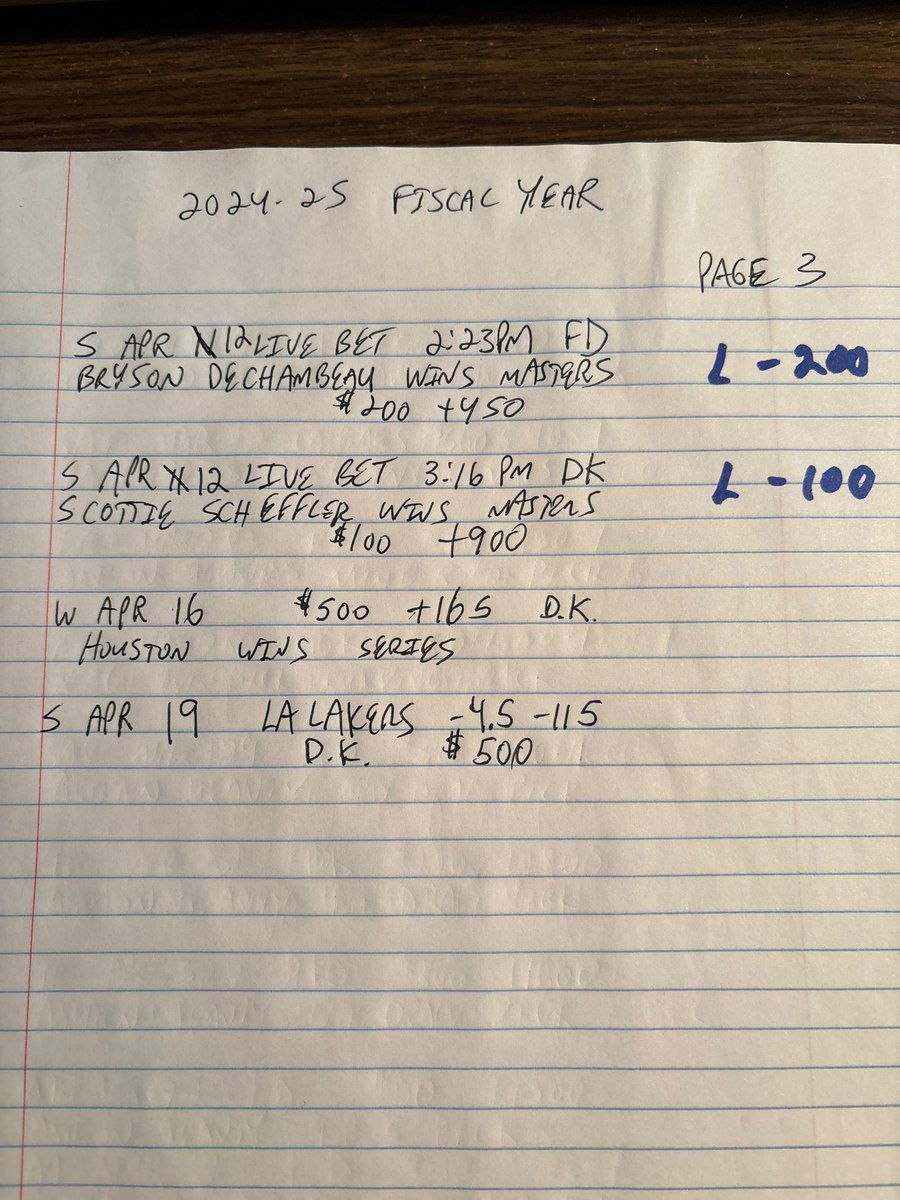 2024-25 FISCAL YEAR
PAGE 3
S APR 12 LIVE BET 2:23PM FD
BRYSON DECHAMBEAU WINS MASTERS
L -200
$200 +450
S APR 12 LIVE BET 3:16 PM DK
SCOTTIE SCHEFFLER WINS MASTERS
L -100
$100 +900
W APR 16 $500 +165 D.K.
HOUSTON WINS SERIES
S APR 19 LA LAKERS -4.5 -115
D.K. $500